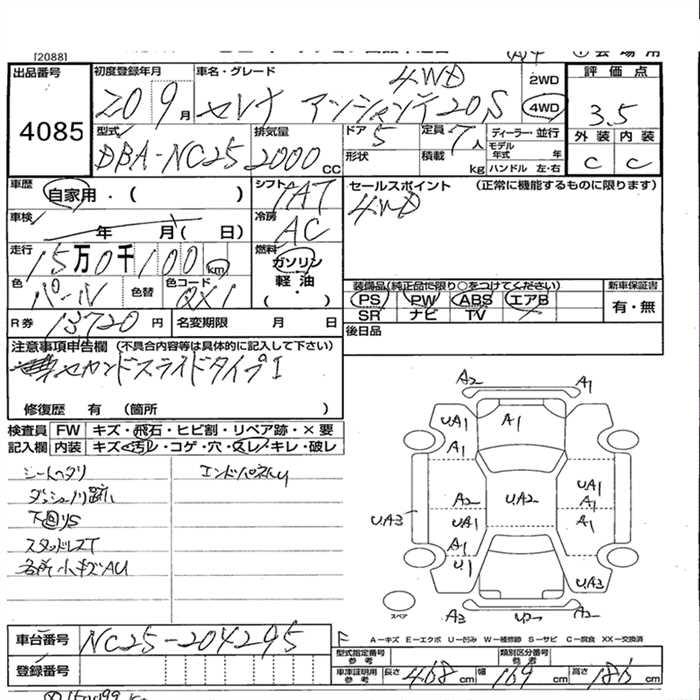 [2088]
出品番号 初度登録年月 車名・グレード 4WD 2WD 評価点
4085 20 9月 セレナ アンシャンテ20S 4WD 3.5
型式 排気量 ドア 定員 ディーラー・並行 外装 内装
DBA-NC25 2000cc 5 7人 モデル年式 年 C C
形状 積載 kg ハンドル 左・右
車歴 自家用・( ) シフト IAT セールスポイント (正常に機能するものに限ります)
車検 年 月( 日) 冷房 AC 4WD
走行 15万0千100km 燃料 ガソリン 軽油・( )
色 パール 色替 色コード QX1
装備品(純正品に限り○をつけてください) 新車保証書
PS PW ABS エアB 有・無
SR ナビ TV
R券 13720円 名変期限 月 日 後日品
注意事項申告欄 (不具合内容等は具体的に記入して下さい)
セカンドスライドタイプI
修復歴 有 (箇所 )
検査員 FW キズ・飛石・ヒビ割・リペア跡・×要
記入欄 内装 キズ・汚レ・コゲ・穴・スレ・キレ・破レ
シートヘタリ エンドパネルU
ダッシュノリ跡
下回りS
スタッドレスT
各所小キズAU
A2 A1
UA1 A1
A1
A2 UA2 UA1
UA3 UA1 A1
A1 A1
U1 UA3
スペア A3 U2 A2
車台番号 NC25-204295
A-キズ E-エクボ U-凹み W-補修跡 S-サビ C-腐食 XX-交換済
登録番号
型式指定番号 参考 類別区分番号 参考
車庫証明用 参考 長さ 468cm 幅 169cm 高さ 186cm